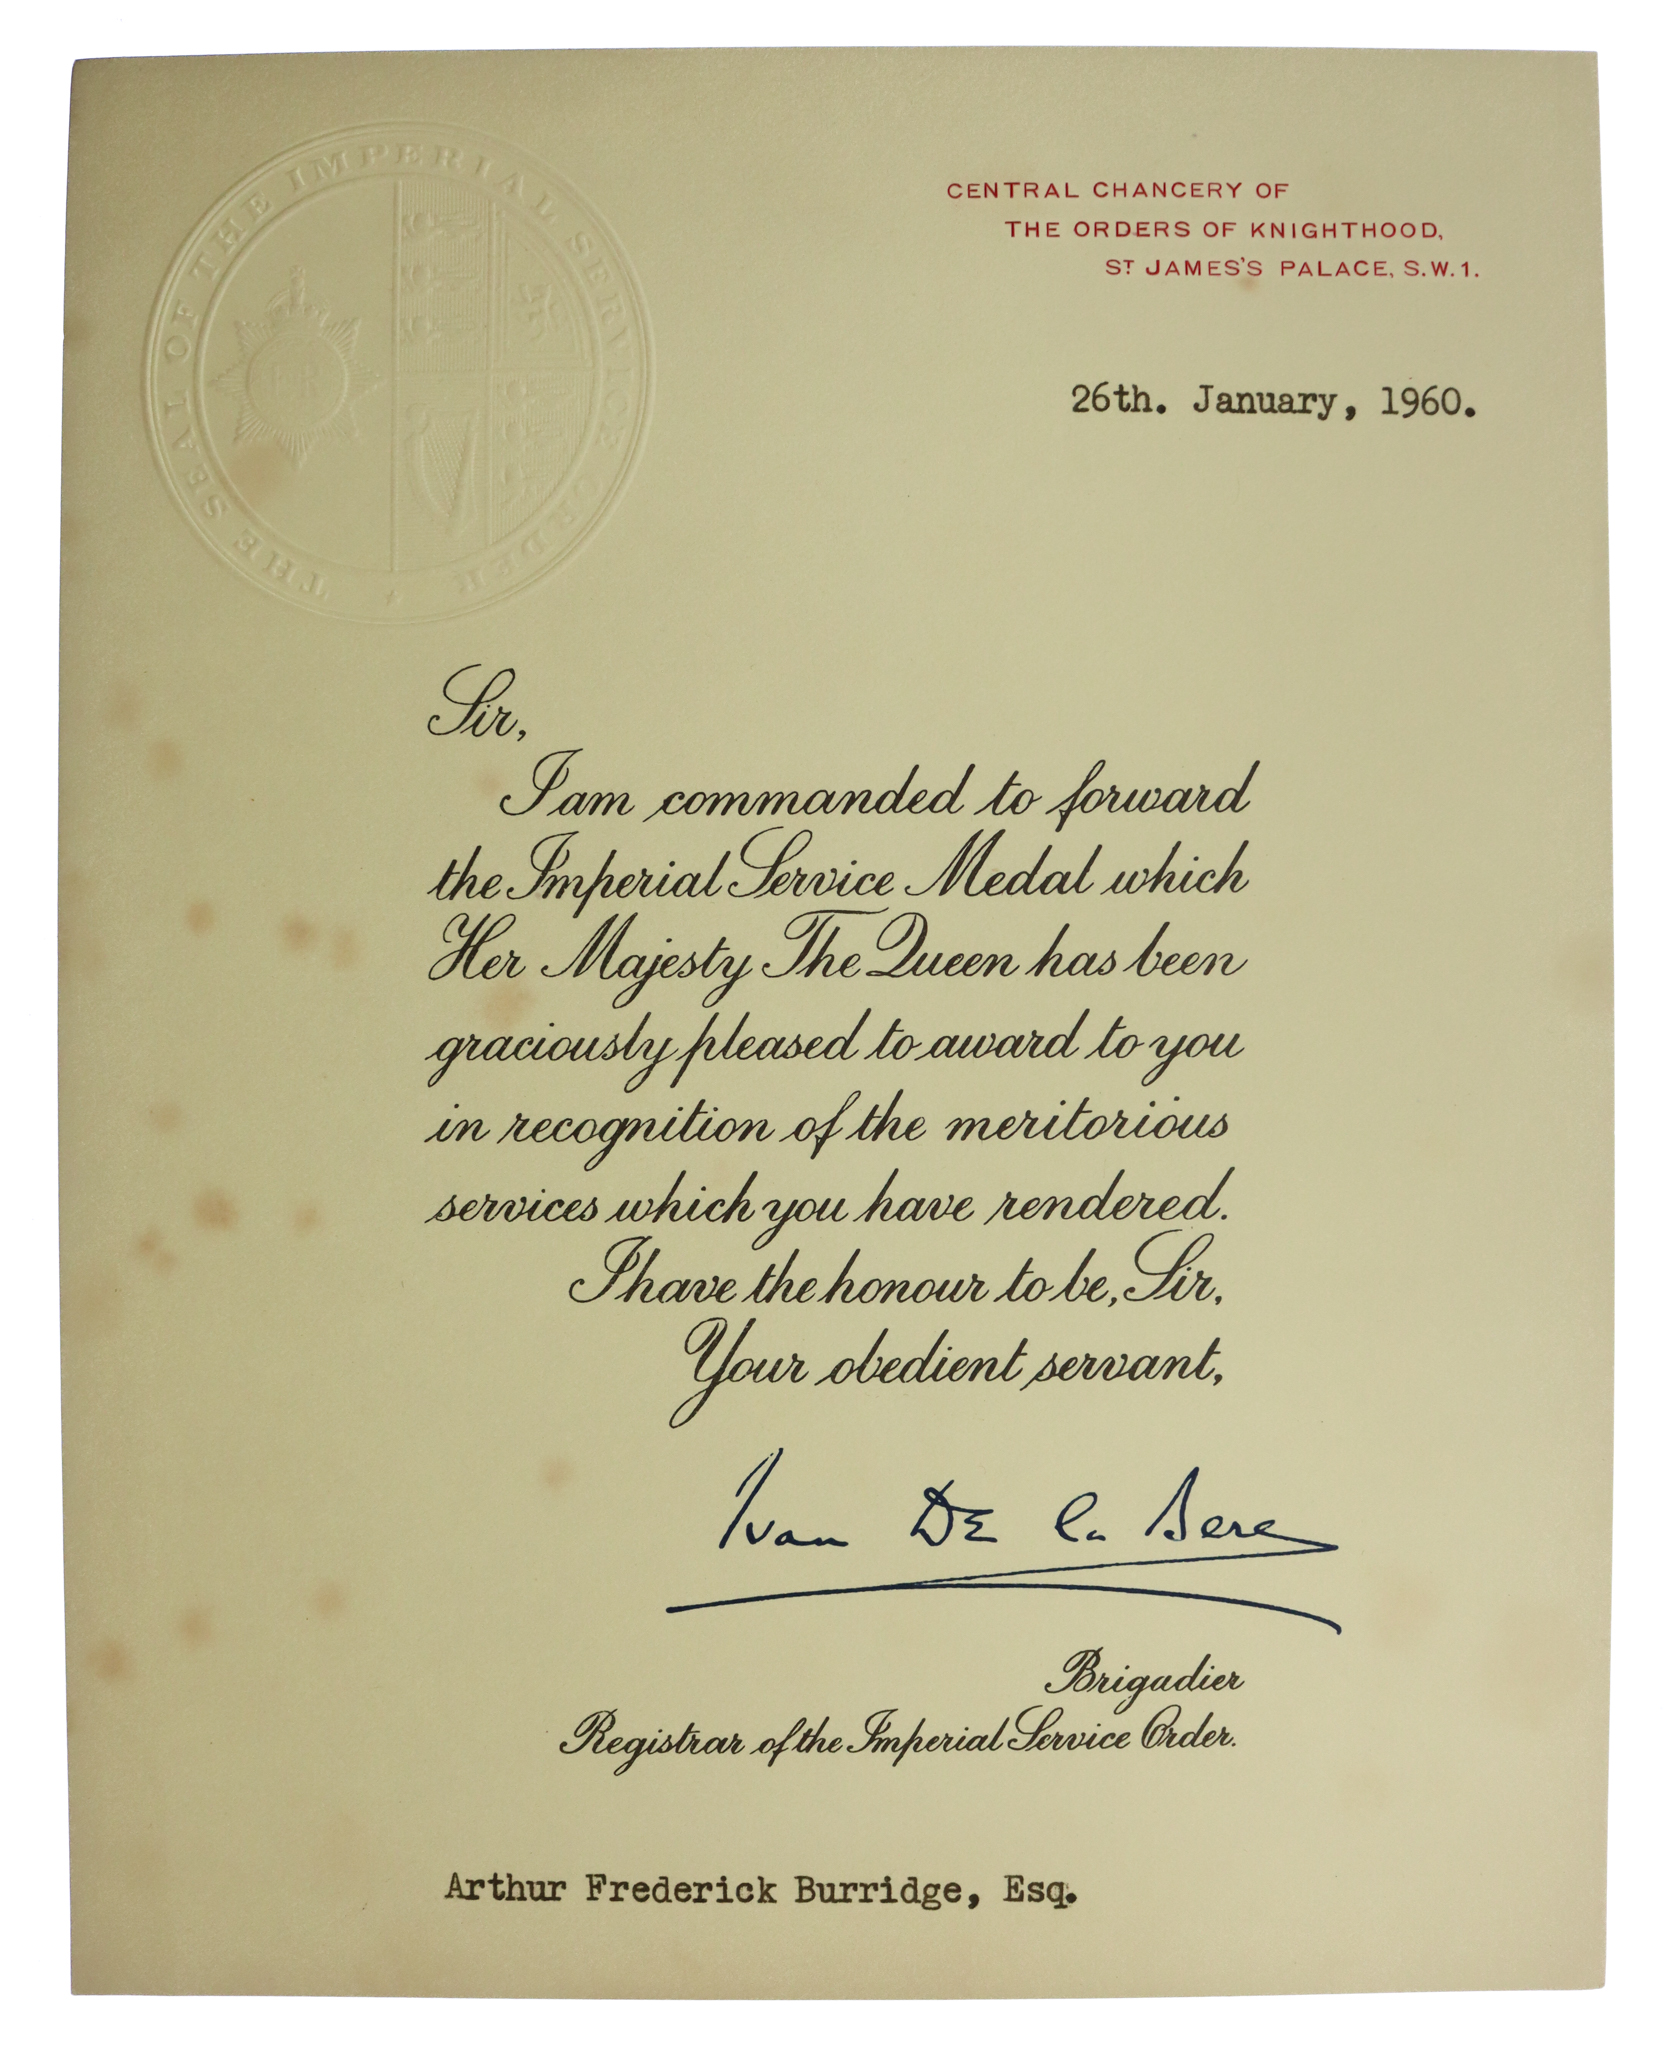 THE SEAL OF THE IMPERIAL SERVICE ORDER
CENTRAL CHANCERY OF
THE ORDERS OF KNIGHTHOOD,
ST JAMES'S PALACE, S.W.1.
26th. January, 1960.
Sir,
I am commanded to forward
the Imperial Service Medal which
Her Majesty The Queen has been
graciously pleased to award to you
in recognition of the meritorious
services which you have rendered.
I have the honour to be, Sir,
Your obedient servant,
Ivan De la Bere
Brigadier
Registrar of the Imperial Service Order.
Arthur Frederick Burridge, Esq.